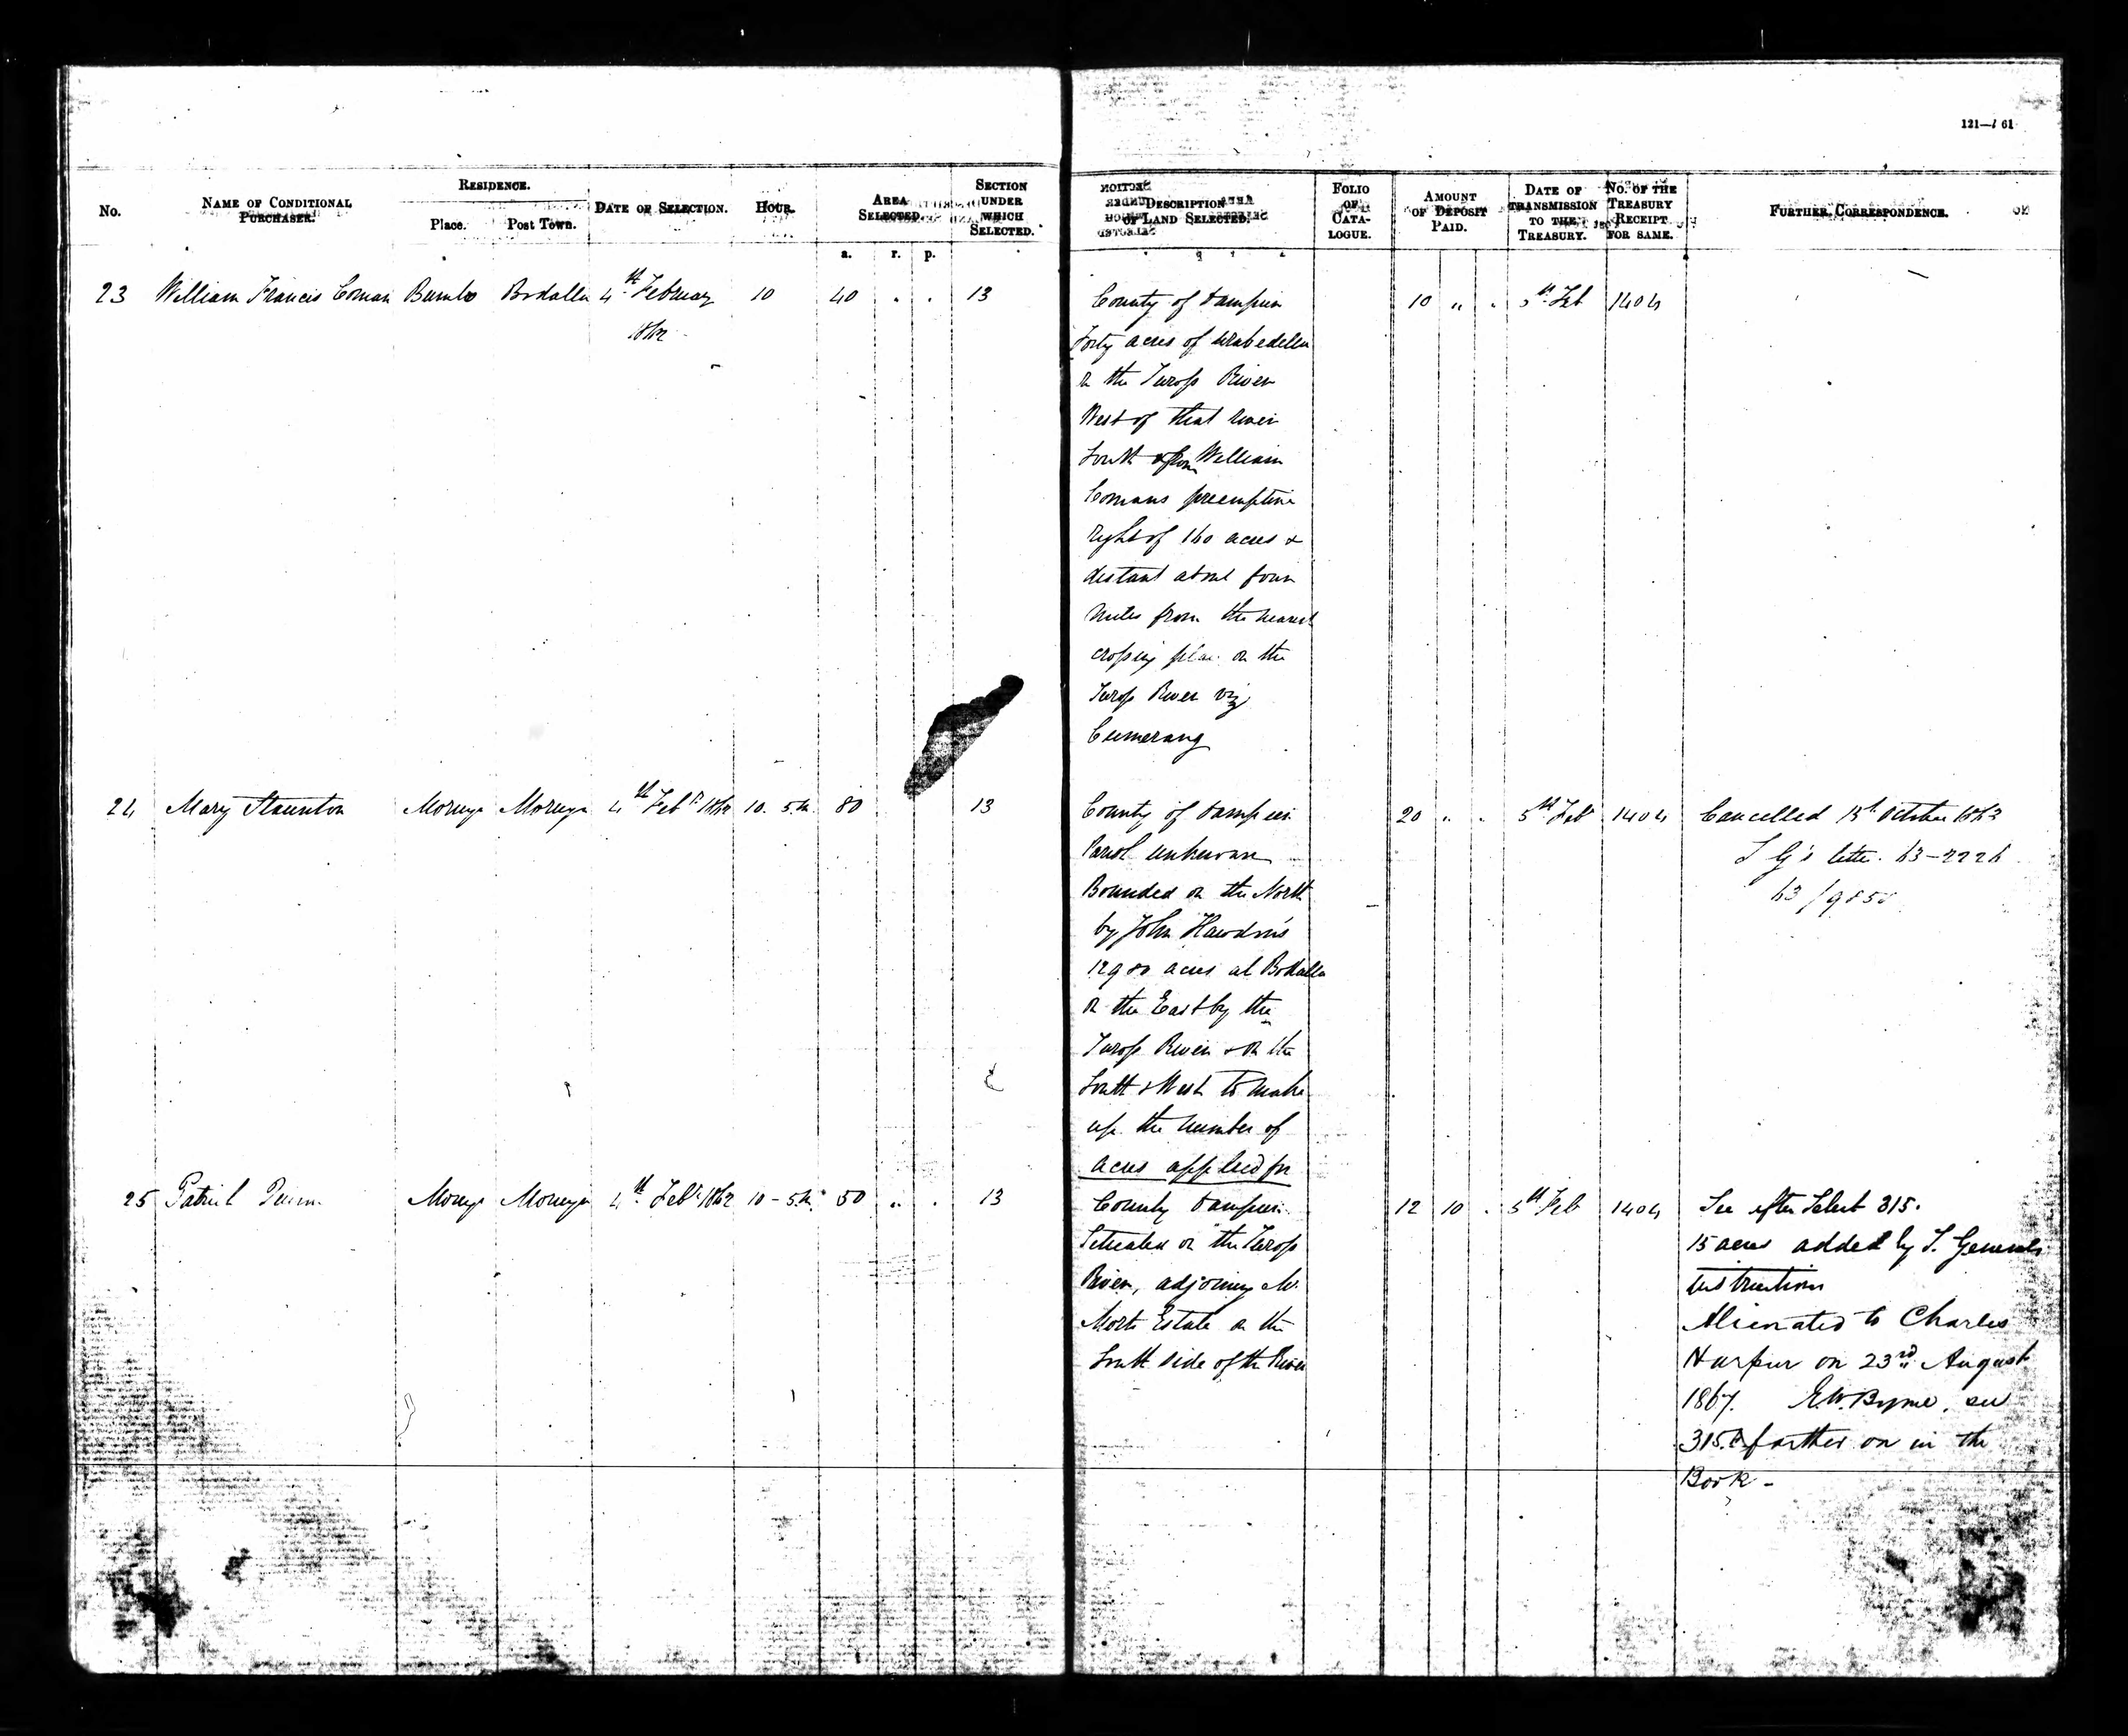 121—/ 61
No.
NAME OF CONDITIONAL PURCHASER.
RESIDENCE.
Place.
Post Town.
DATE OF SELECTION.
HOUR.
AREA SELECTED.
a. r. p.
SECTION UNDER WHICH SELECTED.
DESCRIPTION OF LAND SELECTED.
FOLIO OF CATA-LOGUE.
AMOUNT OF DEPOSIT PAID.
DATE OF TRANSMISSION TO THE TREASURY.
NO. OF THE TREASURY RECEIPT FOR SAME.
FURTHER CORRESPONDENCE.
23 William Francis Coman Bumbo Bodalla 4th February 10 40 " " 13
1862
County of Dampier
Forty acres of
on the Turoß River
West of that river
South from William
Comans preemptive
right of 160 acres &
distant about four
miles from the nearest
croßing place on the
Turoß River viz
Cumerang
10 " " 5th Feb 1404
24 Mary Staunton Moruya Moruya 4th Feby 1862 10. 5m. 80 13
County of Dampier
Parish unknown
Bounded on the North
by John Hawdon's
12980 acres at Bodalla
on the East by the
Turoß River & on the
South & West to make
up the number of
acres applied for
20 " " 5th Feb 1404
Cancelled October 1863
S G's letter. 63-2226
63/9850
25 Patrick Moruya Moruya 4th Feby 1862 10-5m. 50 " " 13
County Dampier
Situated on the Turoß
River, adjoining Mr.
Morts Estate on the
South side of the River
12 10 . 5th Feb 1404
See after Select 315.
15 acres added by S. Generals
instructions
Alienated to Charles
Harpur on 23rd August
1867. E.W. Byrne, see
315. farther on in the
Book -